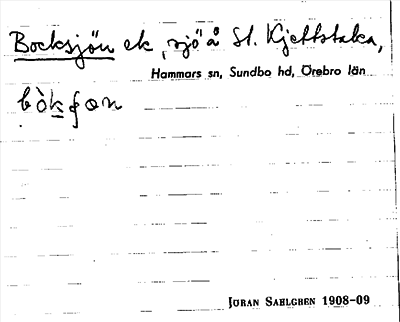 Bocksjön ek, sjö å St. Kjettstaka,
Hammars sn, Sundbo hd, Örebro län
JÖRAN SAHLGREN 1908-09